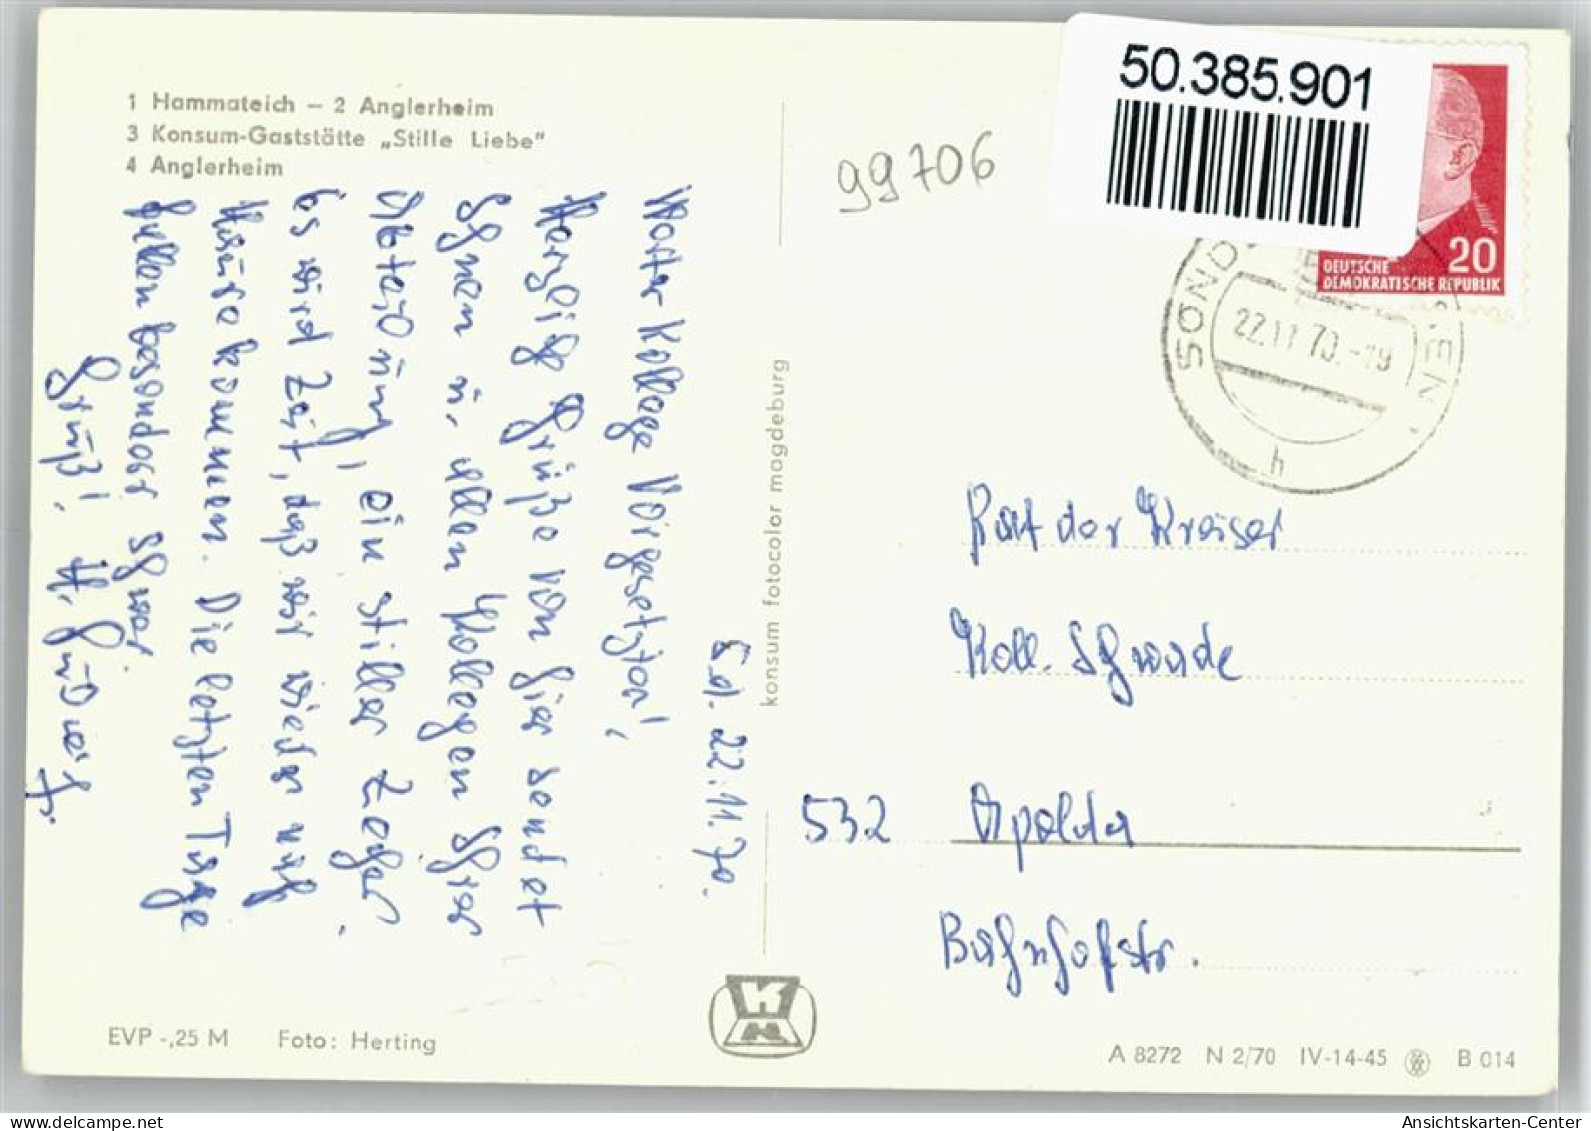 1 Hammateich – 2 Anglerheim
3 Konsum-Gaststätte „Stille Liebe"
4 Anglerheim
99706
50.385.901
20
DEUTSCHE
DEMOKRATISCHE REPUBLIK
SOND
22.11.70.-19
h
Sd. 22.11.70.
Werter Kollege Vorgesetzter!
Herzliche Grüße von hier sendet
Ihnen u. allen Kollegen Ihrer
Abteilung, ein stiller Zecher.
Es wird Zeit, daß wir wieder nach
Hause kommen. Die letzten Tage
fallen besonders schwer.
Gruß! H.
konsum fotocolor magdeburg
Rat des Kreises
Koll. Schwade
532 Apolda
Bahnhofstr.
EVP -,25 M Foto: Herting
A 8272 N 2/70 IV-14-45 B 014
Ansichtskarten-Center